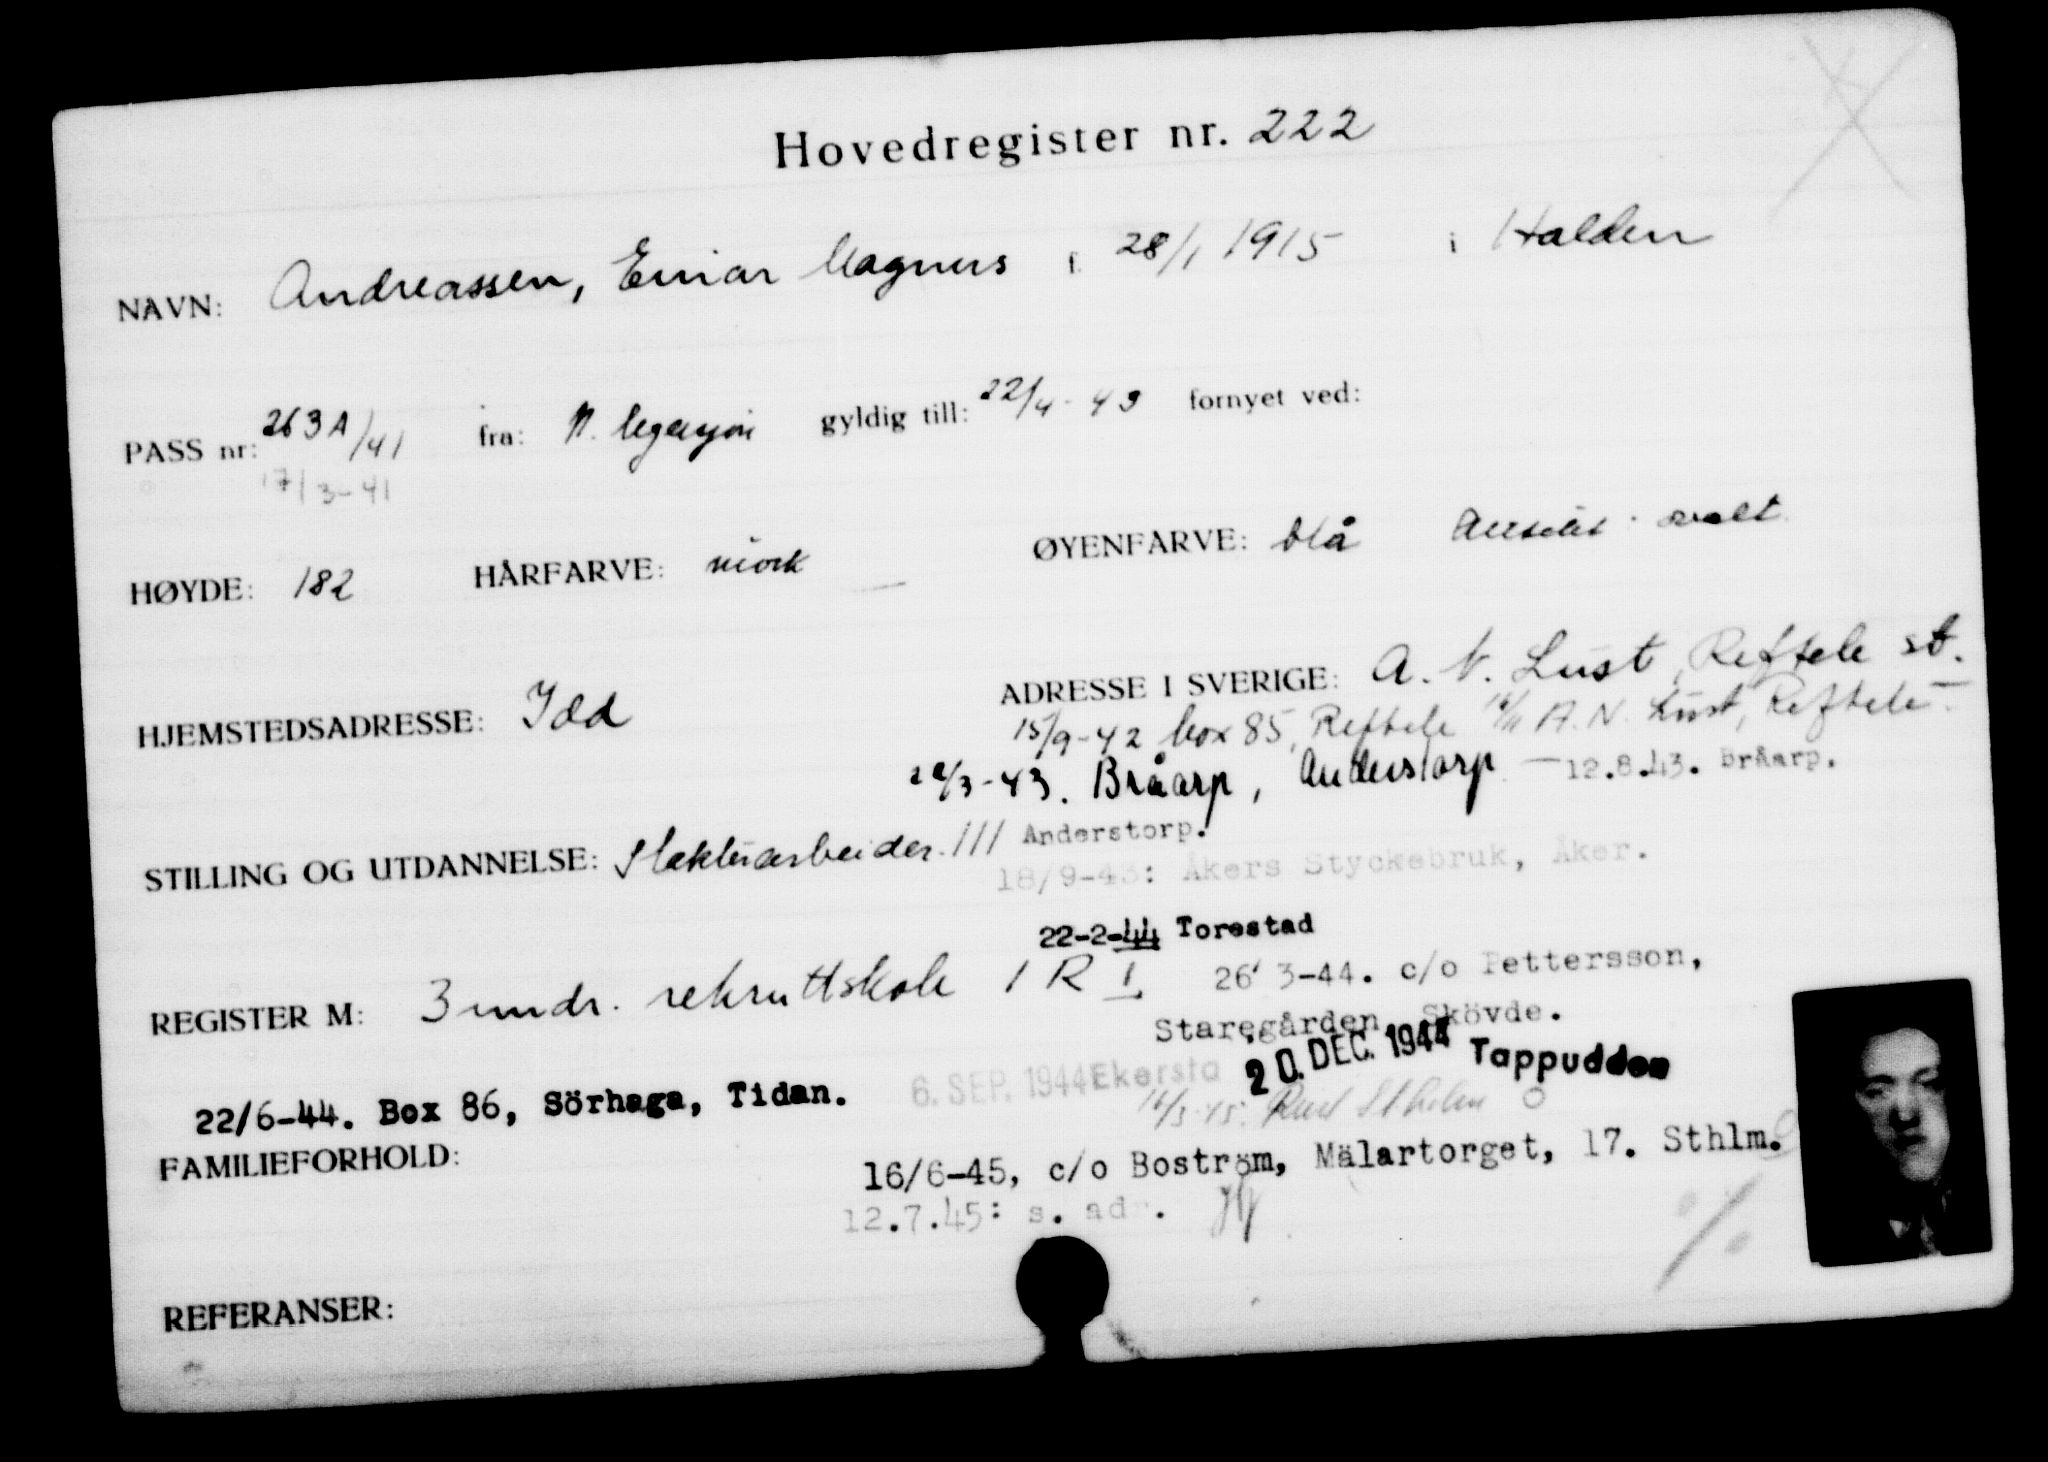 Hovedregister nr. 222
NAVN: Andreassen, Einar Magnus f. 28/1 1915 i Halden
PASS nr: 263A/41 fra: N. legasjon gyldig till: 22/4-43 fornyet ved:
17/3-41
HØYDE: 182 HÅRFARVE: mörk ØYENFARVE: blå Ansikt ovalt
HJEMSTEDSADRESSE: Idd ADRESSE I SVERIGE: A. N. Lust, Reftele st.
15/9-42 box 85, Reftele A.N. Lust, Reftele
/3-43. Bråarp, Anderstorp — 12.8.43. Bråarp.
STILLING OG UTDANNELSE: Slakteriarbeider. III Anderstorp.
18/9-43: Åkers Styckebruk, Åker.
22-2-44 Torestad
REGISTER M: 3 mndr. rekruttskole I R I 26 3-44. c/o Pettersson,
Staregården, Skövde.
6. SEP. 1944 Ekersta 20. DEC. 1944 Tappudden
22/6-44. Box 86, Sörhaga, Tidan.
FAMILIEFORHOLD:
16/6-45, c/o Boström, Mälartorget, 17. Sthlm.
12.7.45: s. adr.
REFERANSER: